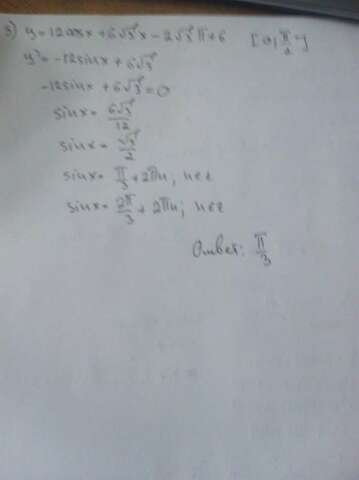 5) y = 12cosx + 6√3x - 2√3π + 6 [0; π/2]
y' = -12sinx + 6√3
-12sinx + 6√3 = 0
sinx = 6√3/12
sinx = √3/2
sinx = π/3 + 2πn; nεz
sinx = 2π/3 + 2πn; nεz
Ответ: π/3